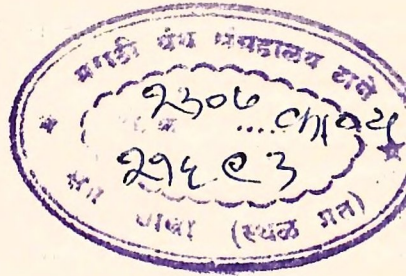 मराठी ग्रंथ संग्रहालय ठाणे
२३०७ काव्य
२१६९३
शाखा (स्थळ प्रत)